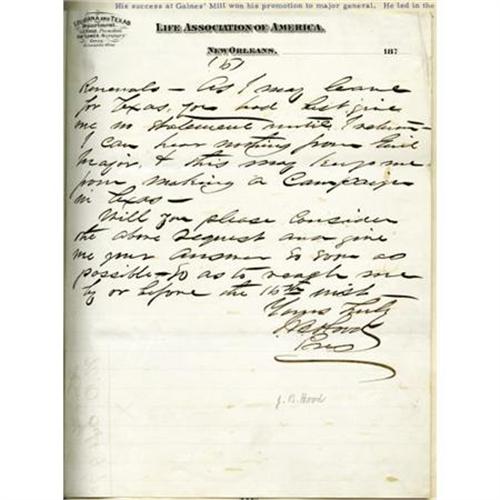 His success at Gaines' Mill won his promotion to major general. He led in the
LOUISIANA AND TEXAS
Department.
LIFE ASSOCIATION OF AMERICA,
NEW ORLEANS, 187
(5)
Renewals — As I may leave
for Texas, you had best give
me no statement until I return—
I can hear nothing from Genl
Major, & this may keep me
from making a Campaign
in Texas —
Will you please consider
the above request and give
me your answer so soon as
possible — so as to reach me
by or before the 16th inst
Yours Truly
J B Hood
Pres
J. B. Hood